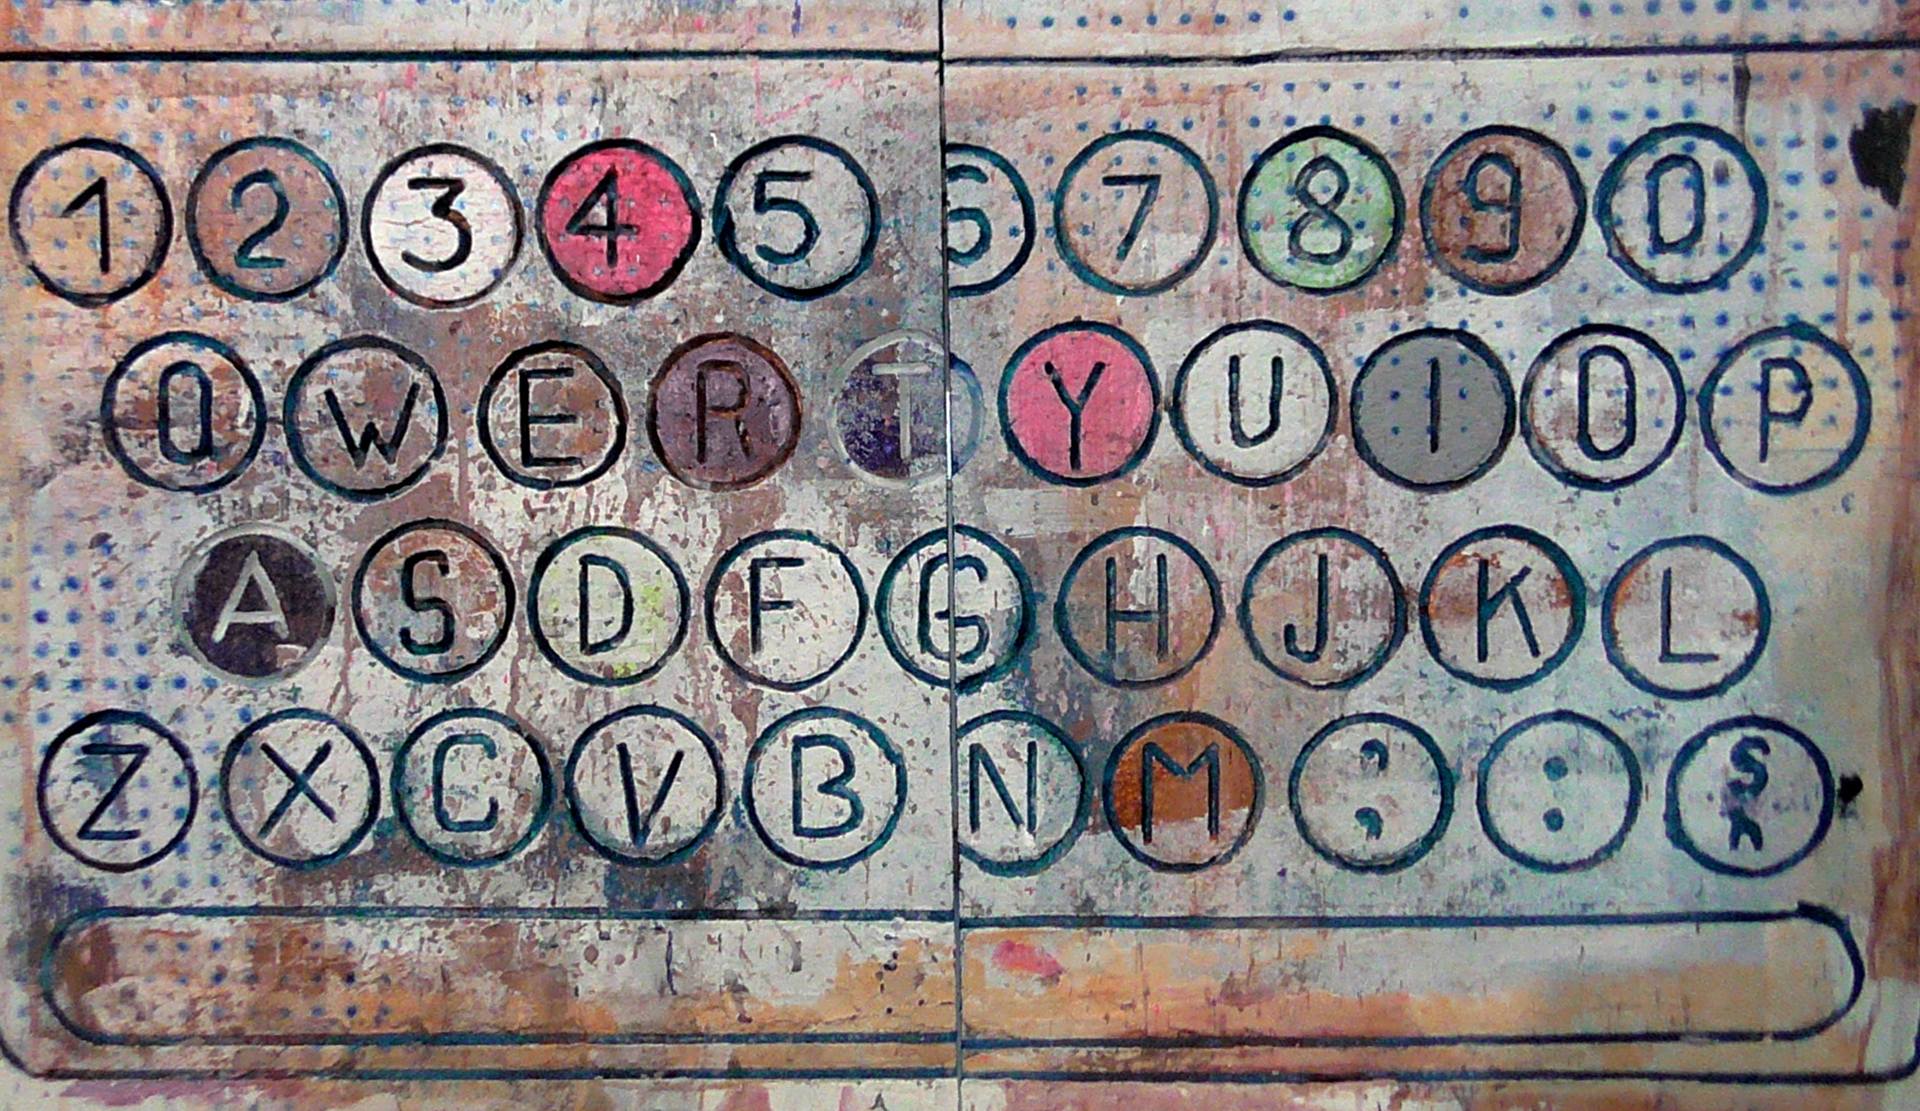 1 2 3 4 5 6 7 8 9 0
Q W E R T Y U I O P
A S D F G H J K L
Z X C V B N M , :